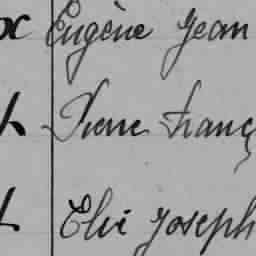 x Eugène Jean
h Pierre Franç
t Elie Joseph